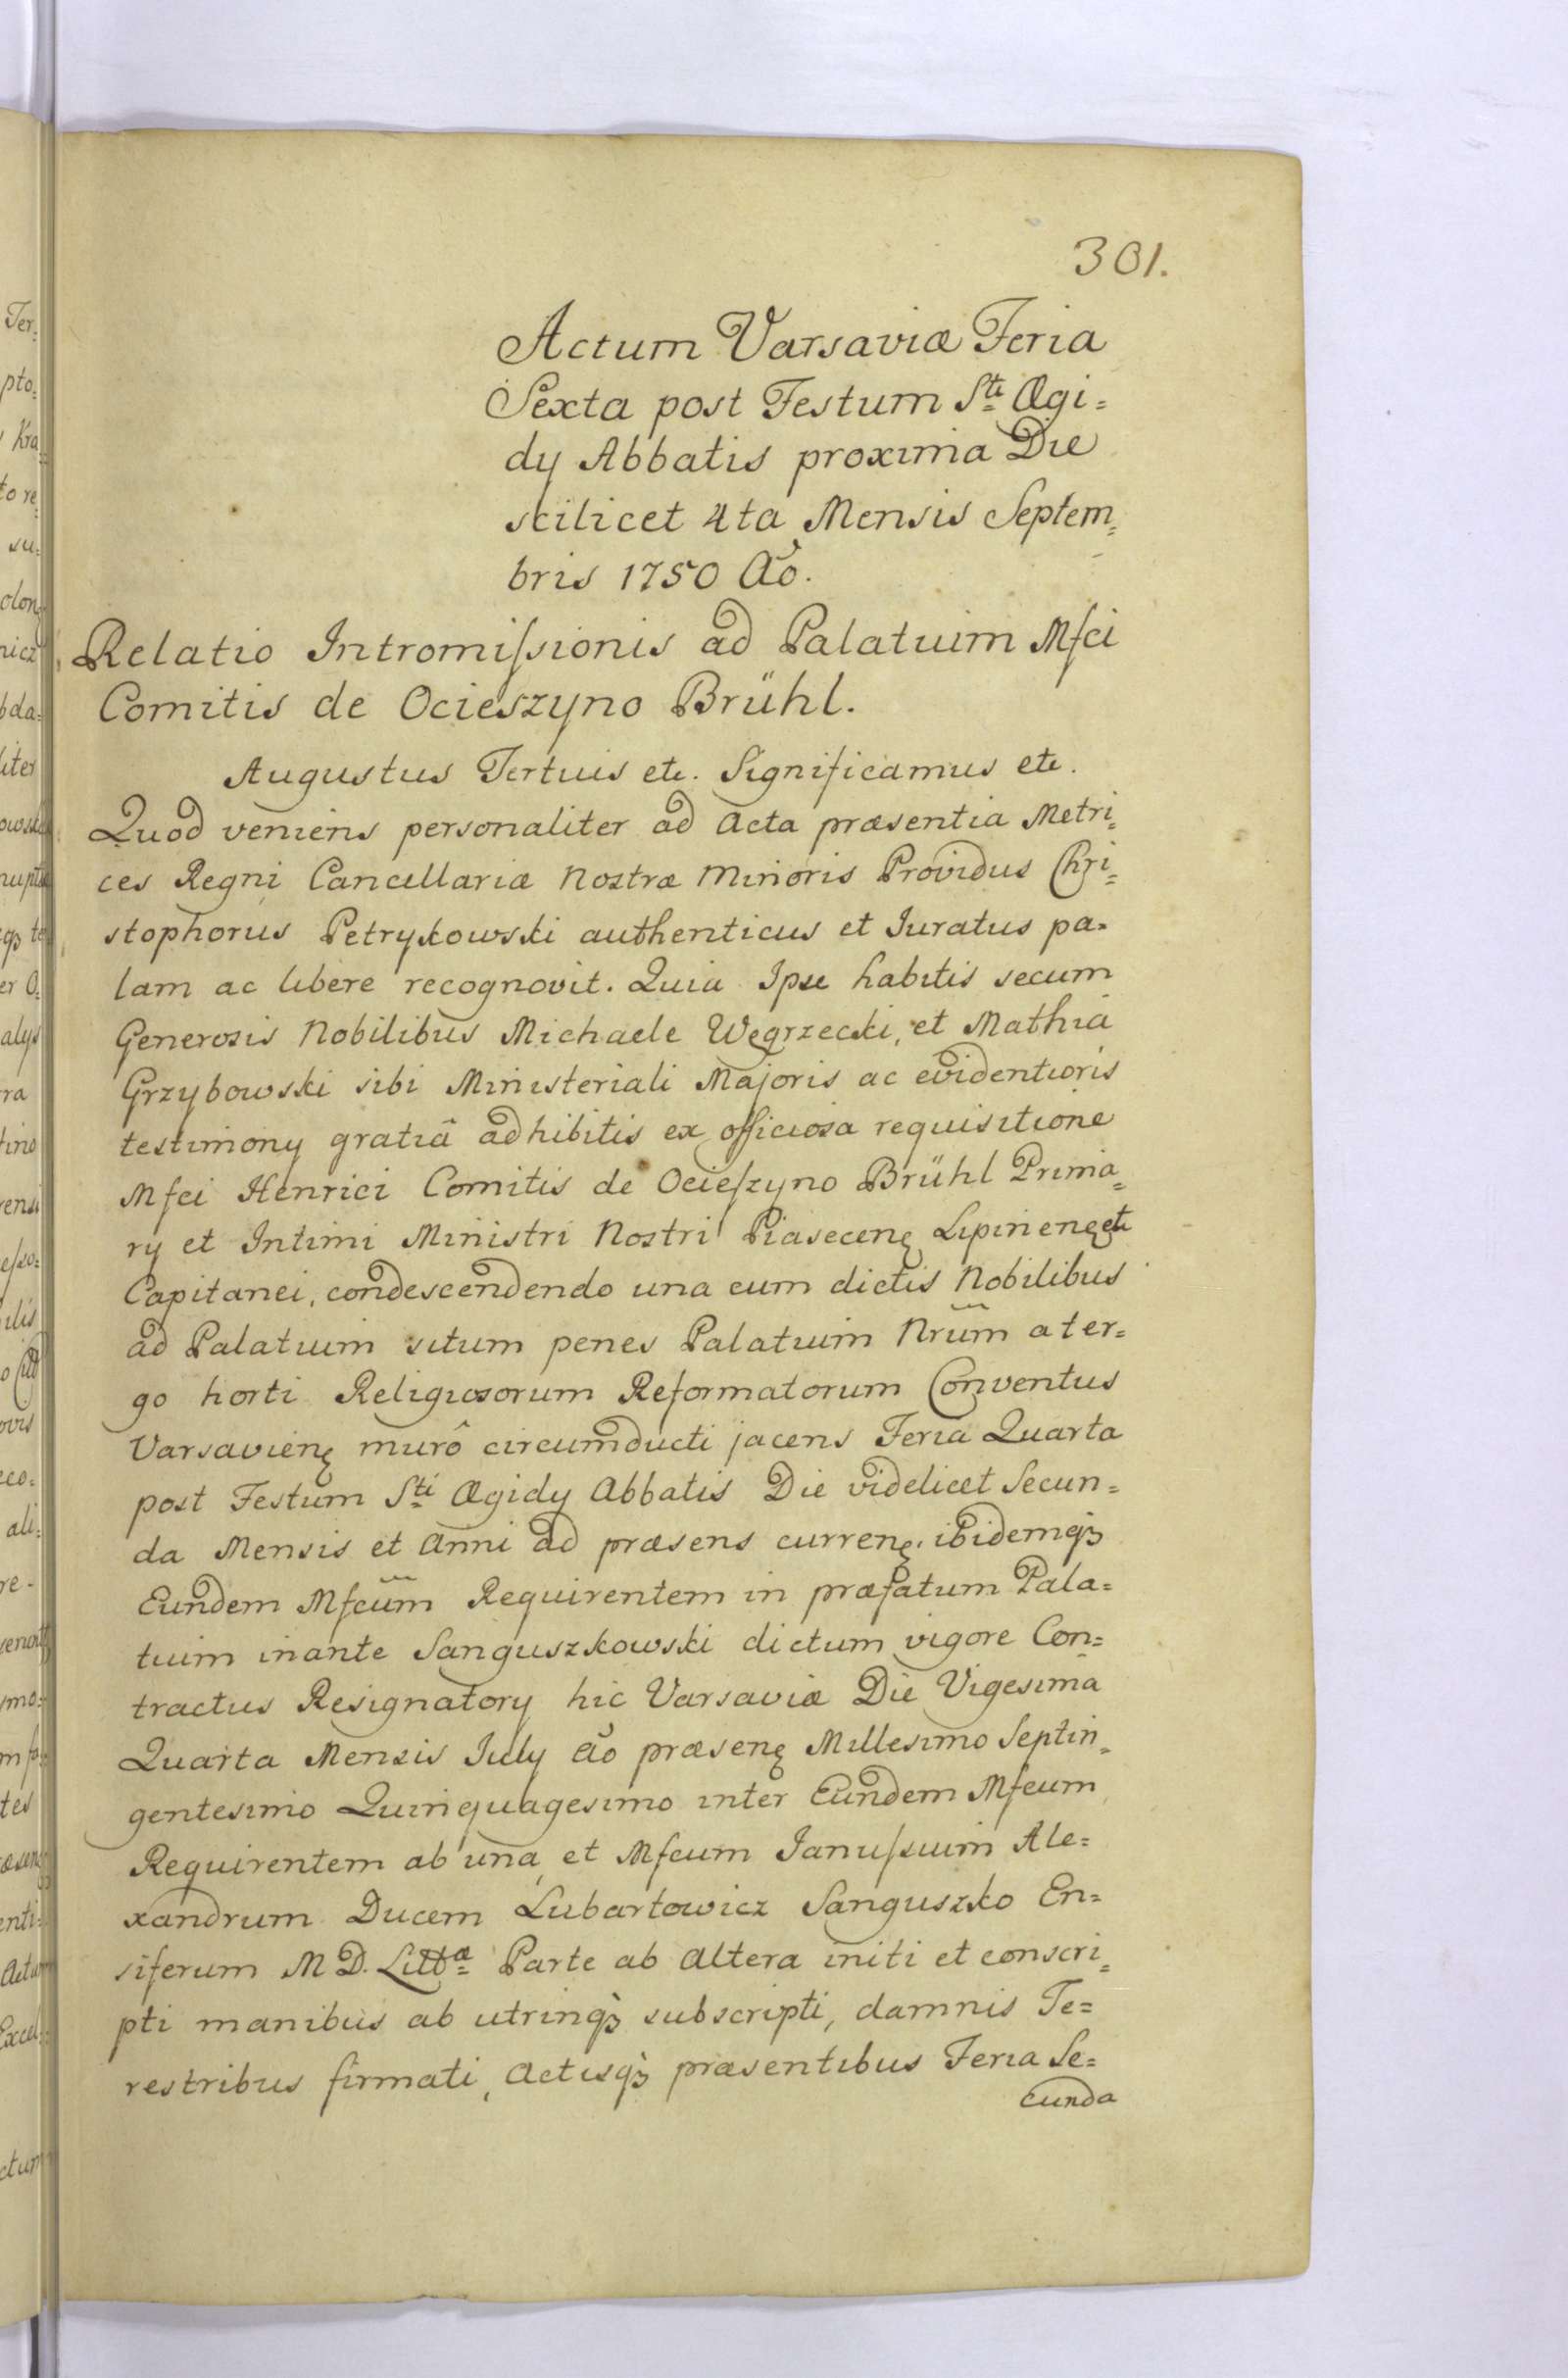 301.
Actum Varsaviæ Feria
Sexta post Festum Sti Ægi=
dy Abbatis proxima Die
scilicet 4ta Mensis Septem=
bris 1750 Aõ.
Relatio Intromissionis ad Palatium Mfci
Comitis de Ocieszyno Brühl.
Augustus Tertius etc. Significamus etc.
Quod veniens personaliter ad Acta præsentia Metri=
ces Regni Cancellariæ Nostræ Minoris Providus Chri=
stophorus Petrykowski authenticus et Juratus pa=
lam ac libere recognovit. Quia Ipse habitis secum
Generosis Nobilibus Michaele Węgrzecki, et Mathia
Grzybowski sibi Ministeriali Majoris ac evidentioris
testimony gratiâ adhibitis ex officiosa requisitione
Mfci Henrici Comitis de Ocieszyno Brühl Prima=
ry et Intimi Ministri Nostri Piasecenę Lipinenę etc
Capitanei, condescendendo una cum dictis Nobilibus
ad Palatium situm penes Palatium Nrum̃ a ter=
go horti Religiosorum Reformatorum Conventus
Varsavienę murô circumducti jacens Feria Quarta
post Festum Sti Ægidy Abbatis Die videlicet Secun=
da Mensis et Anni ad præsens currenę. ibidemqꝫ
Eundem Mfcum̃ Requirentem in præfatum Pala=
tium inante Sanguszkowski dictum vigore Con=
tractus Resignatory hic Varsaviæ Die Vigesima
Quarta Mensis July Aõ præsenę Millesimo Septin=
gentesimo Quinquagesimo inter Eundem Mfcum
Requirentem ab una, et Mfcum Janussium Ale=
xandrum Ducem Lubartowicz Sanguszko En=
siferum M D. Littæ Parte ab altera initi et conscri=
pti manibus ab utrinqꝫ subscripti, damnis Te=
restribus firmati, Actisqꝫ præsentibus Feria Se=
cunda